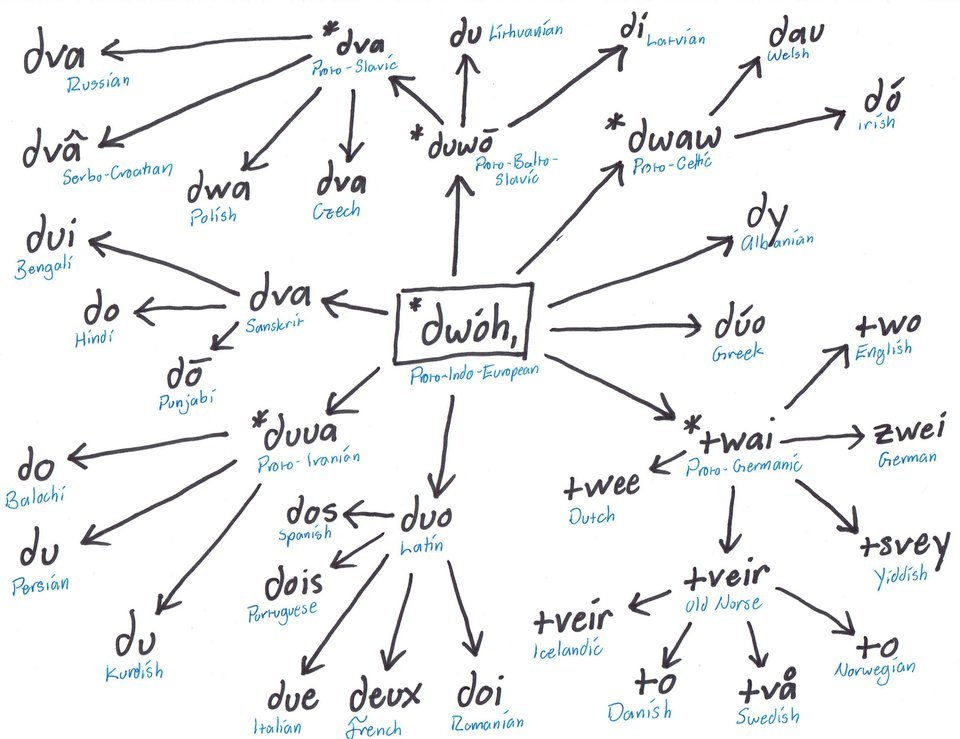 dva
Russian
*dva
Proto-Slavic
du Lithuanian
di Latvian
dau
Welsh
dvâ
Serbo-Croatian
dwa
Polish
dva
Czech
*duwō
Proto-Balto-
Slavic
*dwaw
Proto-Celtic
dó
irish
dui
Bengali
do
Hindi
dva
Sanskrit
dō
Punjabi
*dwóh₁
Proto-Indo-European
dy
Albanian
dúo
Greek
two
English
*duua
Proto-Iranian
do
Balochi
du
Persian
du
Kurdish
duo
Latin
dos
Spanish
dois
Portuguese
due
Italian
deux
French
doi
Romanian
*twai
Proto-Germanic
zwei
German
twee
Dutch
tsvey
Yiddish
tveir
Old Norse
tveir
Icelandic
to
Danish
två
Swedish
to
Norwegian